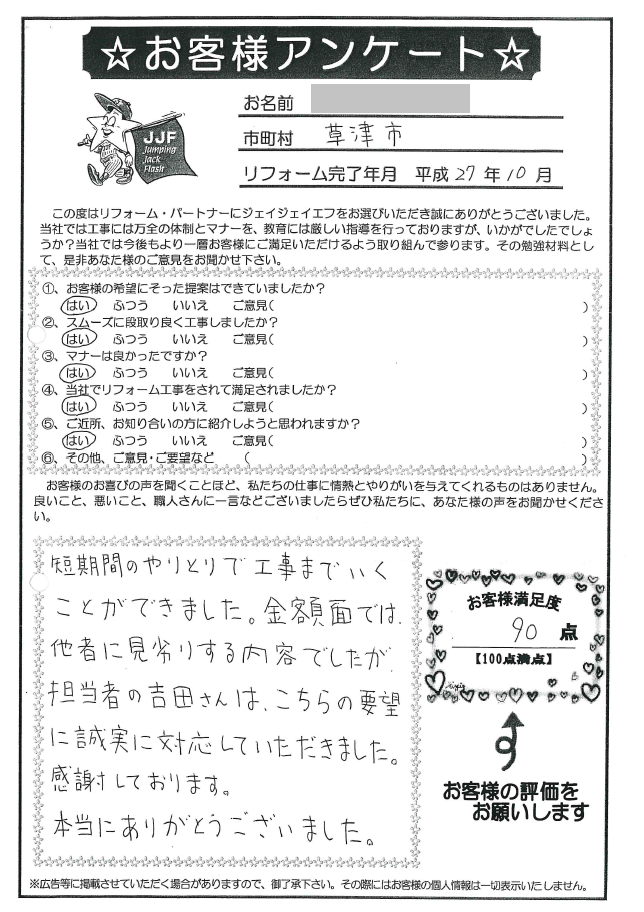 ☆お客様アンケート☆
JJF
Jumping
Jack
Flash
お名前
市町村 草津市
リフォーム完了年月 平成27年10月
この度はリフォーム・パートナーにジェイジェイエフをお選びいただき誠にありがとうございました。
当社では工事には万全の体制とマナーを、教育には厳しい指導を行っておりますが、いかがでしたでしょ
うか？当社では今後もより一層お客様にご満足いただけるよう取り組んで参ります。その勉強材料とし
て、是非あなた様のご意見をお聞かせ下さい。
①、お客様の希望にそった提案はできていましたか？
はい ふつう いいえ ご意見( )
②、スムーズに段取り良く工事しましたか？
はい ふつう いいえ ご意見( )
③、マナーは良かったですか？
はい ふつう いいえ ご意見( )
④、当社でリフォーム工事をされて満足されましたか？
はい ふつう いいえ ご意見( )
⑤、ご近所、お知り合いの方に紹介しようと思われますか？
はい ふつう いいえ ご意見( )
⑥、その他、ご意見・ご要望など ( )
お客様のお喜びの声を聞くことほど、私たちの仕事に情熱とやりがいを与えてくれるものはありません。
良いこと、悪いこと、職人さんに一言などございましたらぜひ私たちに、あなた様の声をお聞かせくださ
い。
短期間のやりとりで工事までいく
ことができました。金額面では、
他者に見劣りする内容でしたが、
担当者の吉田さんは、こちらの要望
に誠実に対応していただきました。
感謝しております。
本当にありがとうございました。
お客様満足度
90 点
【100点満点】
お客様の評価を
お願いします
※広告等に掲載させていただく場合がありますので、御了承下さい。その際にはお客様の個人情報は一切表示いたしません。